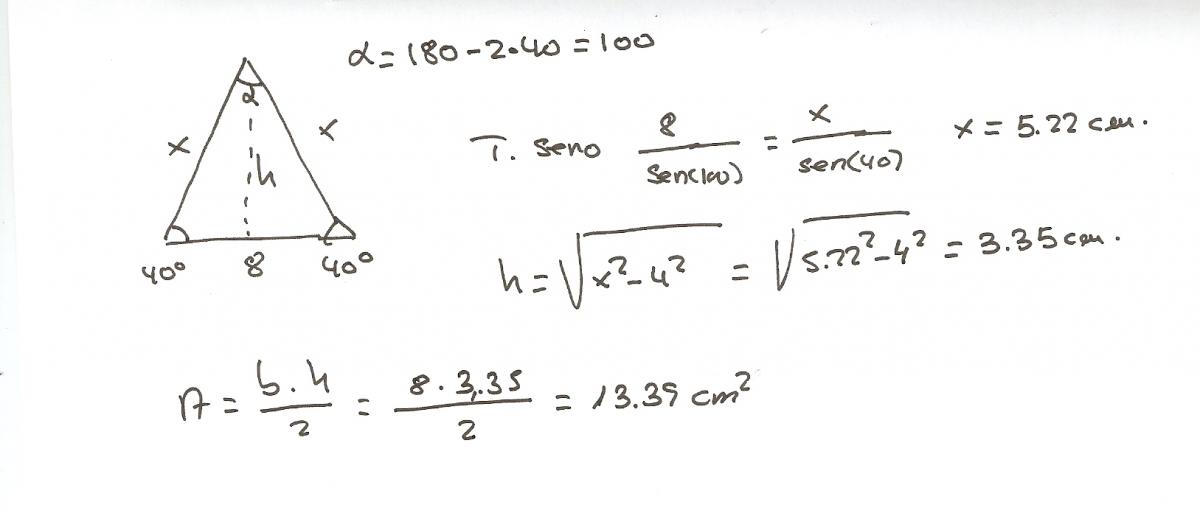 α = 180 - 2·40 = 100
α
x
x
h
40º 8 40º
T. seno 8/sen(100) = x/sen(40) x = 5.22 cm.
h = √(x² - 4²) = √(5.22² - 4²) = 3.35 cm.
A = b·h/2 = 8·3,35/2 = 13.39 cm²